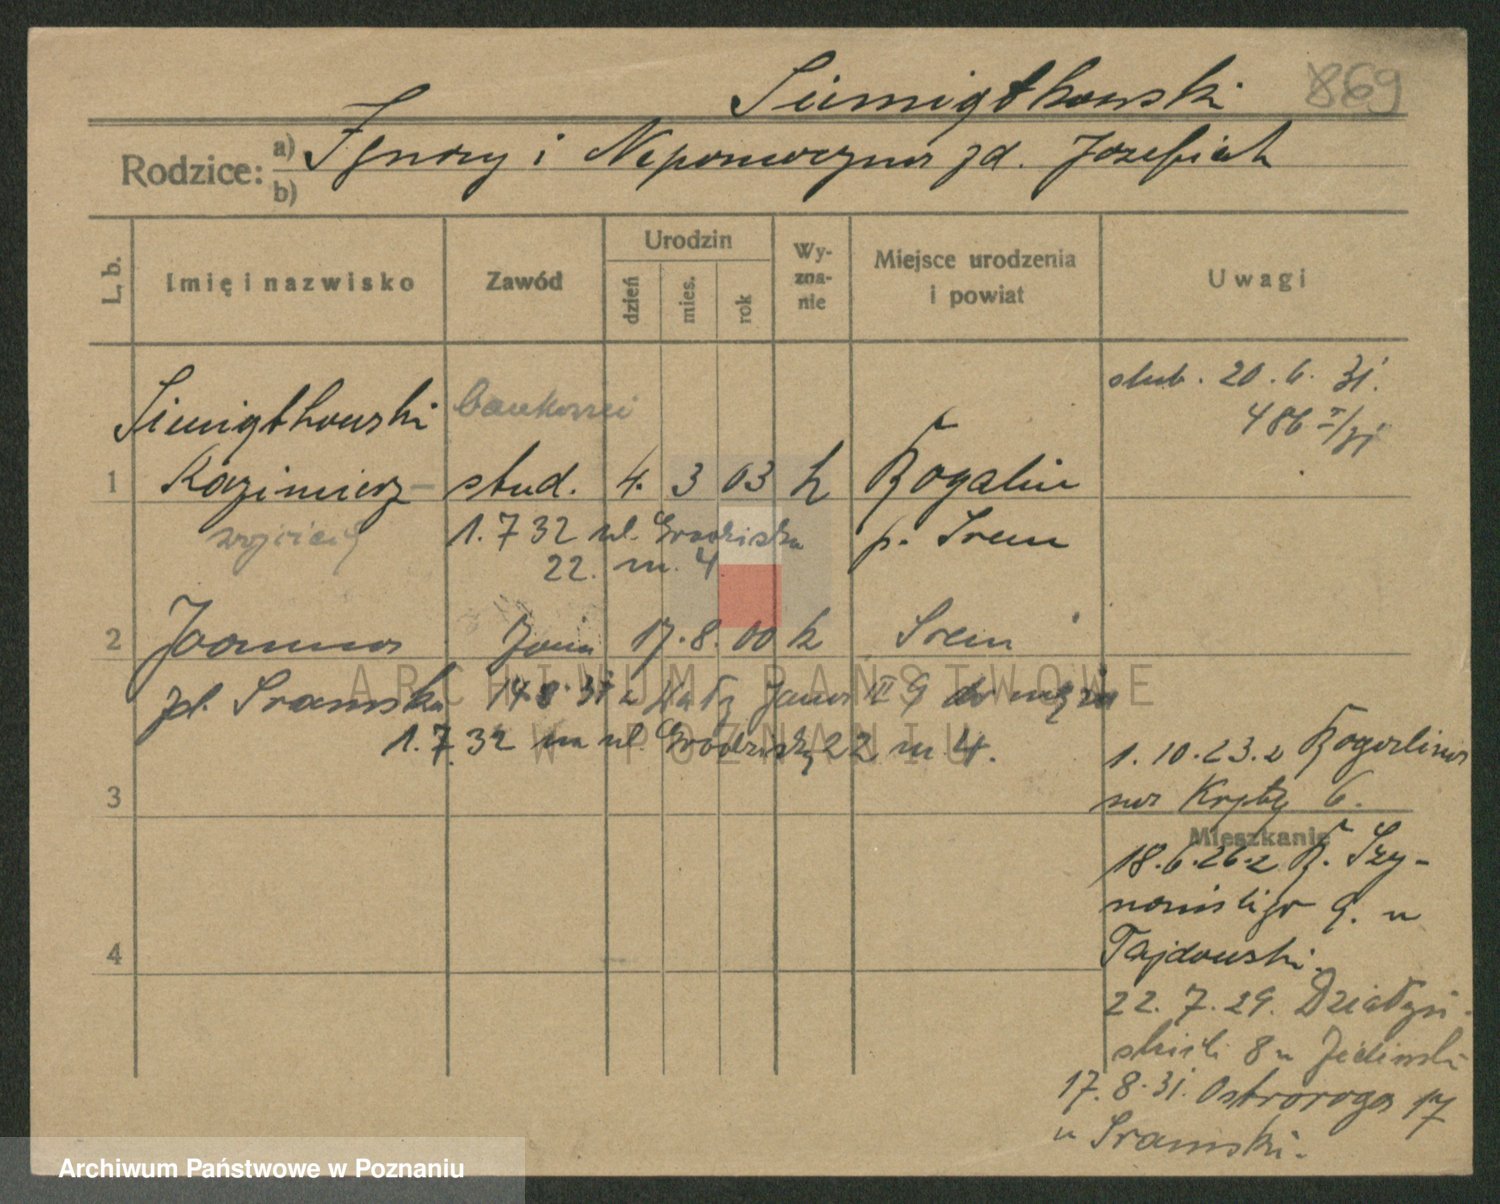 Siemiątkowski 869
Rodzice: a) Ignacy i Nepomucyna zd. Józefiak
b)
L. b. Imię i nazwisko Zawód Urodzin dzień mies. rok Wyznanie Miejsce urodzenia i powiat Uwagi
ślub. 20.6.31.
Siemiątkowski bankowiec 486 I/31
1 Kazimierz stud. 4. 3 03 k Rogalin
Wojciech 1.7 32 ul. Grodziska p. Śrem
22. m. 4
2 Joanna żona 17.8.00 k Śrem
zd. Sramska 14.8.31 z Jana III 9 do męża
1.7.32 na ul. Grodziską 22 m. 4.
1.10.23 z Rogalina
3 na Krętą 6.
Mieszkanie
18.6.26 z R. Szy-
mańskiego 9. u
4 Tajdowski.
22.7.29. Działyń-
skich 8 u
17.8.31. Ostroroga 17
u Sramski.
ARCHIWUM PAŃSTWOWE
W POZNANIU
Archiwum Państwowe w Poznaniu